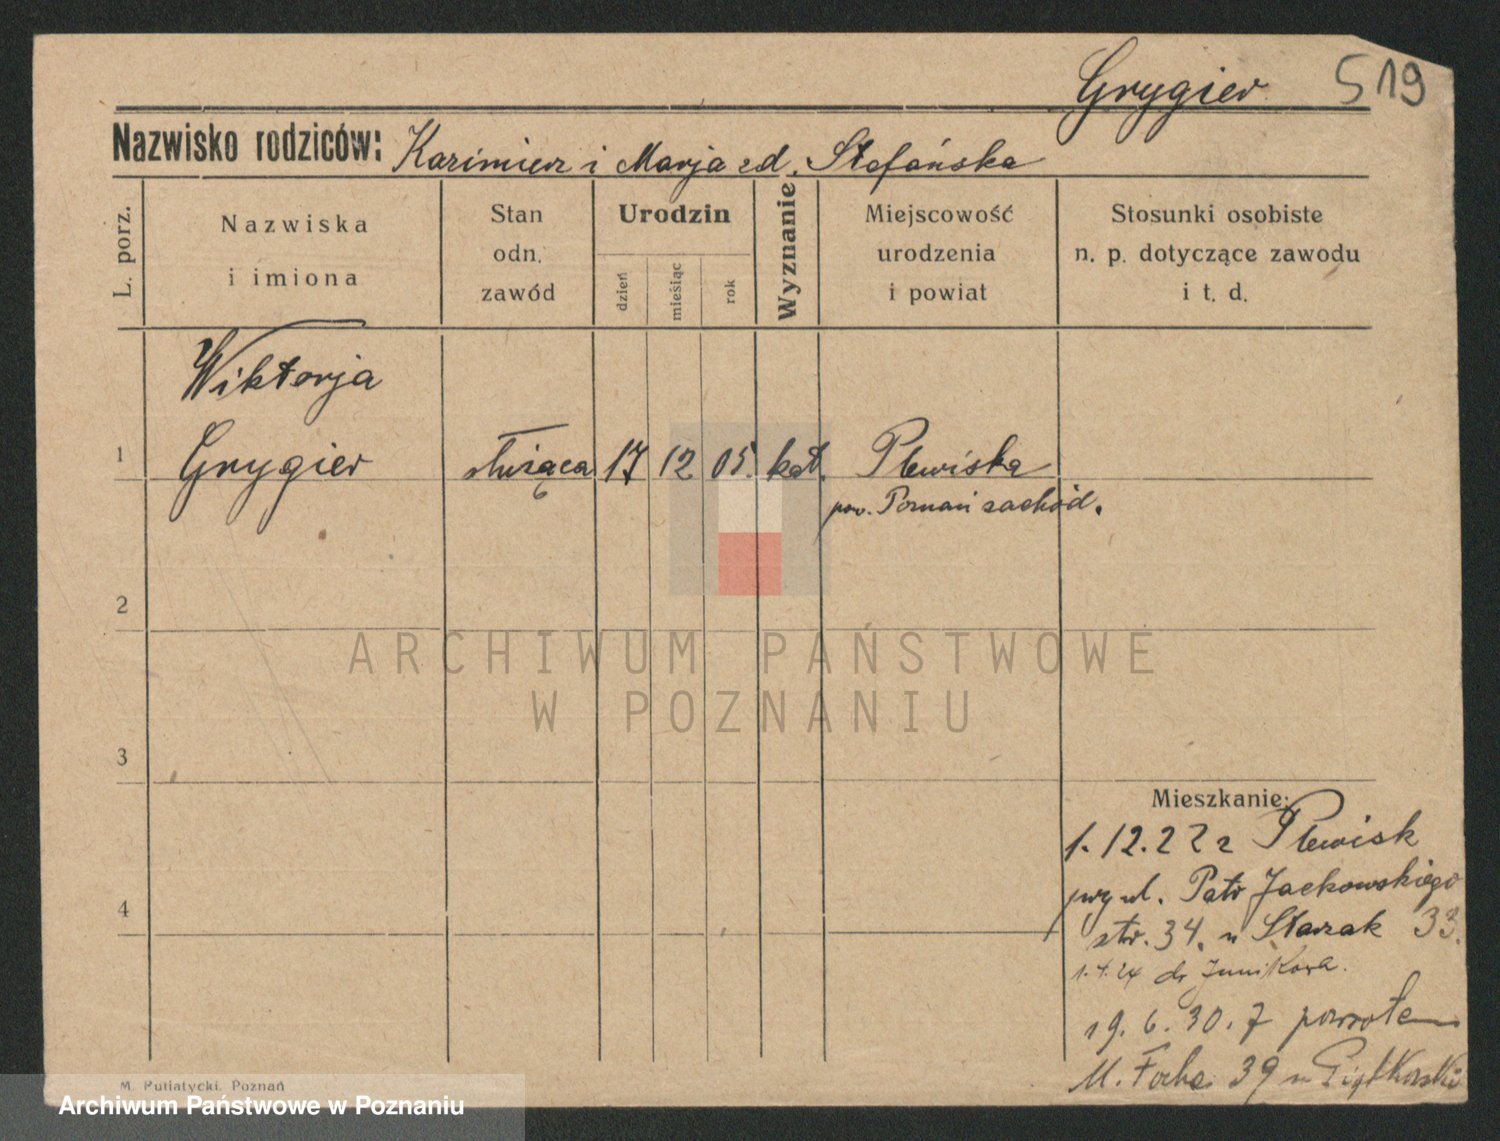 Grygier 519
Nazwisko rodziców: Kazimierz i Marja zd. Stefańska
L. porz.
Nazwiska
i imiona
Stan
odn.
zawód
Urodzin
dzień
miesiąc
rok
Wyznanie
Miejscowość
urodzenia
i powiat
Stosunki osobiste
n. p. dotyczące zawodu
i t. d.
Wiktorja
1 Grygier służąca 17 12 05. kat. Plewiska
pow. Poznań zachód.
2
ARCHIWUM PAŃSTWOWE
W POZNANIU
3
Mieszkanie:
1.12.22 z Plewisk
przy ul. Patr Jackowskiego
4
str. 34. u Starzak 33.
1.4.24 do Junikowa.
19.6.30. z powrotem
M. Focha 39 u Piątkowski
M. Putiatycki, Poznań
Archiwum Państwowe w Poznaniu